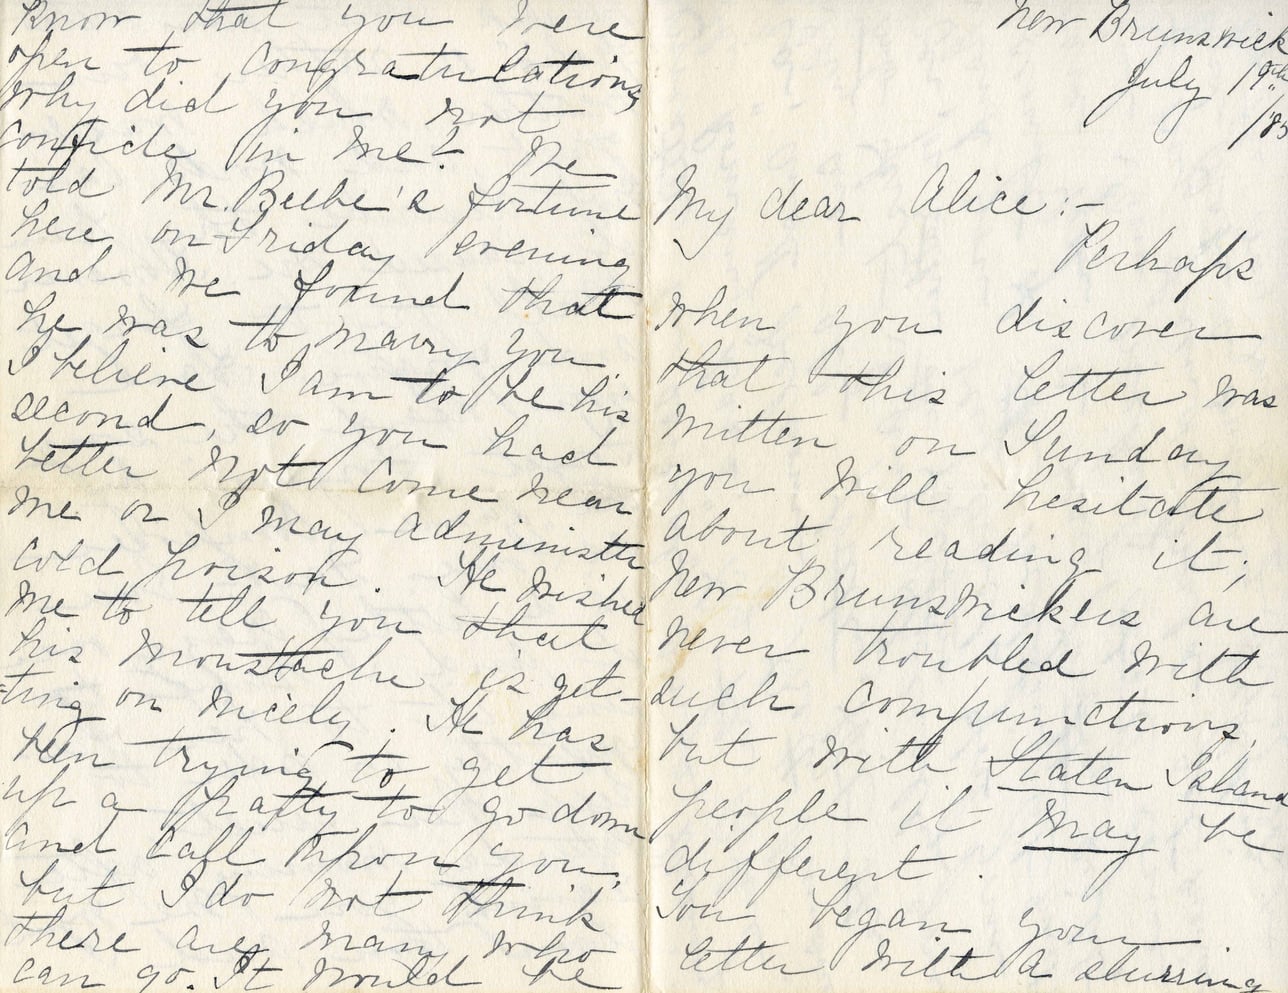 New Brunswick
July 19th
/85
My dear Alice:-
Perhaps
when you discover
that this letter was
written on Sunday
you will hesitate
about reading it;
New Brunswickers are
never troubled with
such compunctions,
but with Staten Island
people it may be
different.
You began your
letter with a slurring
know that you were
open to congratulations,
why did you not
confide in me? We
told Mr. Beebe's fortune
here on Friday evening
and we found that
he was to marry you
I believe I am to be his
second, so you had
better not come near
me or I may administer
cold poison. He wished
me to tell you that
his moustache is get-
ting on nicely. He has
been trying to get
up a party to go down
and call upon you,
but I do not think
there are many who
can go. It would be